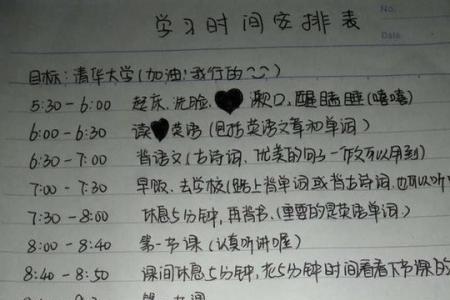 学习时间安排表
No.
Date.
目标:清华大学(加油!我行的~)
5:30-6:00 起床、洗脸、漱口,醒瞌睡(嘻嘻)
6:00-6:30 读英语(包括英语文章和单词)
6:30-7:00 背语文(古诗词,优美的句子 作文可以用到)
7:00-7:30 早饭、去学校(路上背单词或背古诗词,也可以听
7:30-8:00 休息5分钟,再背书.(重要的是英语单词.)
8:00-8:40 第一节课(认真听讲喔)
8:40-8:50 课间休息5分钟,花5分钟时间看看下节课的
第二节课